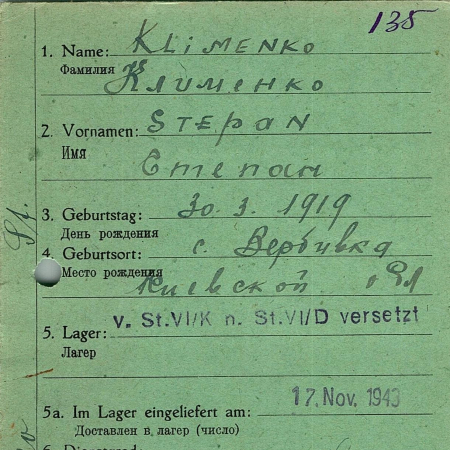 135
1. Name: KLIMENKO
Фамилия Клименко
2. Vornamen: STEPAN
Имя Степан
3. Geburtstag: 30. 3. 1919
День рождения
4. Geburtsort: с. Вербивка
Место рождения Киевской обл
5. Lager: v. St.VI/K n. St.VI/D versetzt
Лагер
17. Nov. 1943
5a. Im Lager eingeliefert am:
Доставлен в лагер (число)